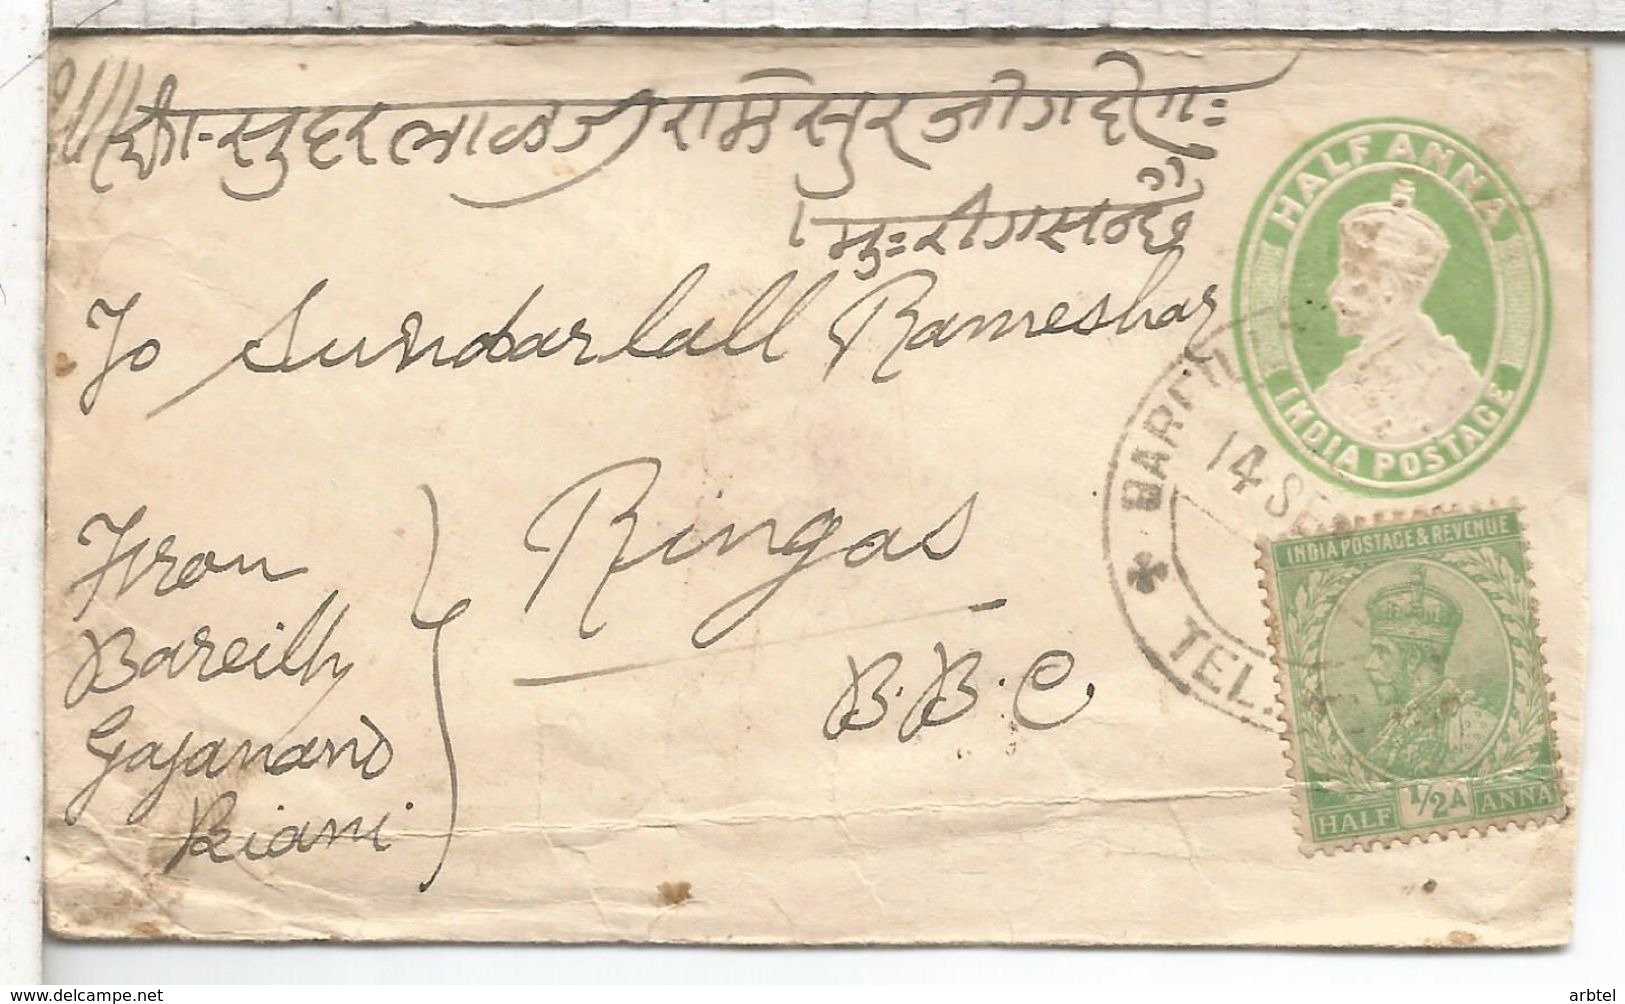 सुदरलालजी रामेसुरजी
To Sundarlall Rameshar
Ringas
B.B.C
From
Bareilly
Gajanand
Biani
HALF ANNA
INDIA POSTAGE
14 SE
TEL.
INDIA POSTAGE & REVENUE
HALF 1/2A ANNA
arbtel